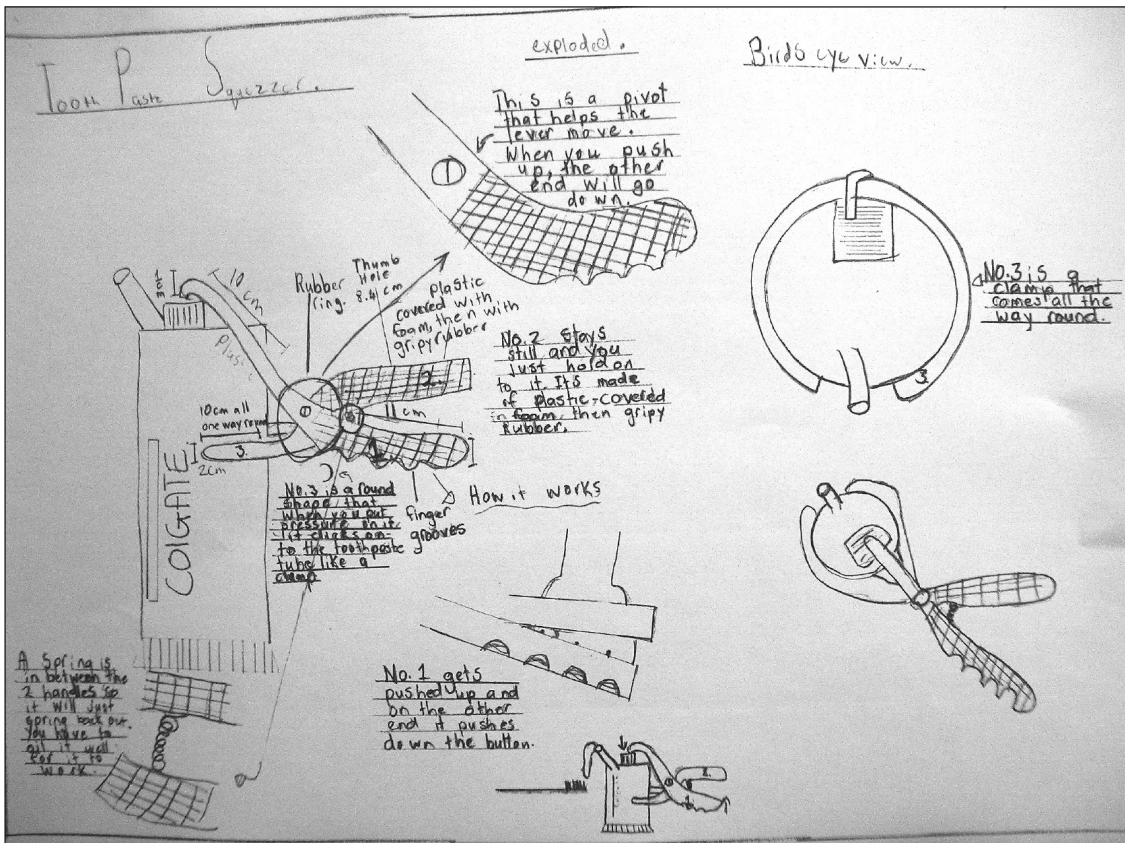 Tooth Paste Squezzer.
exploded.
Birds eye view.
This is a pivot
that helps the
lever move.
When you push
up, the other
end will go
down.
1
Rubber
ring.
Thumb
Hole
8.4 cm
plastic
covered with
foam, then with
gripy rubber
1cm
10cm
Plastic
No. 2 stays
still and you
just hold on
to it. It's made
of plastic, covered
in foam, then gripy
Rubber.
No. 3 is a
clamp that
comes all the
way round.
3.
2.
11 cm
1
10cm all
one way round
3.
2cm
COlGATE
No. 3 is a round
shape that
when you put
pressure on it
it clicks on
to the toothpaste
tube like a
clamp
finger
grooves
How it works
A Spring is
in between the
2 handles so
it will just
spring back out.
You have to
oil it well
for it to
work.
No. 1 gets
pushed up and
on the other
end it pushes
down the button.
2.
1